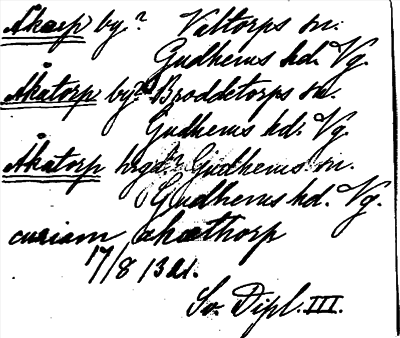 Åkarp by? Valtorps sn.
Gudhems hd. Vg.
Åkatorp by? Broddetorps sn.
Gudhems hd. Vg.
Åkatorp hrgd? Gudhems sn.
Gudhems hd. Vg.
curiam akathorp
17/8 1321.
Sv. Dipl. III.